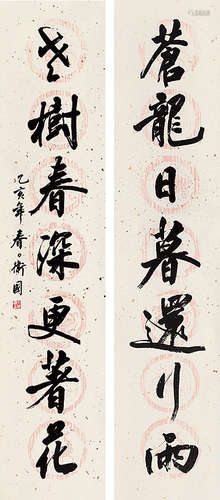 蒼龍日暮還行雨
老樹春深更著花
乙亥年春日衛國